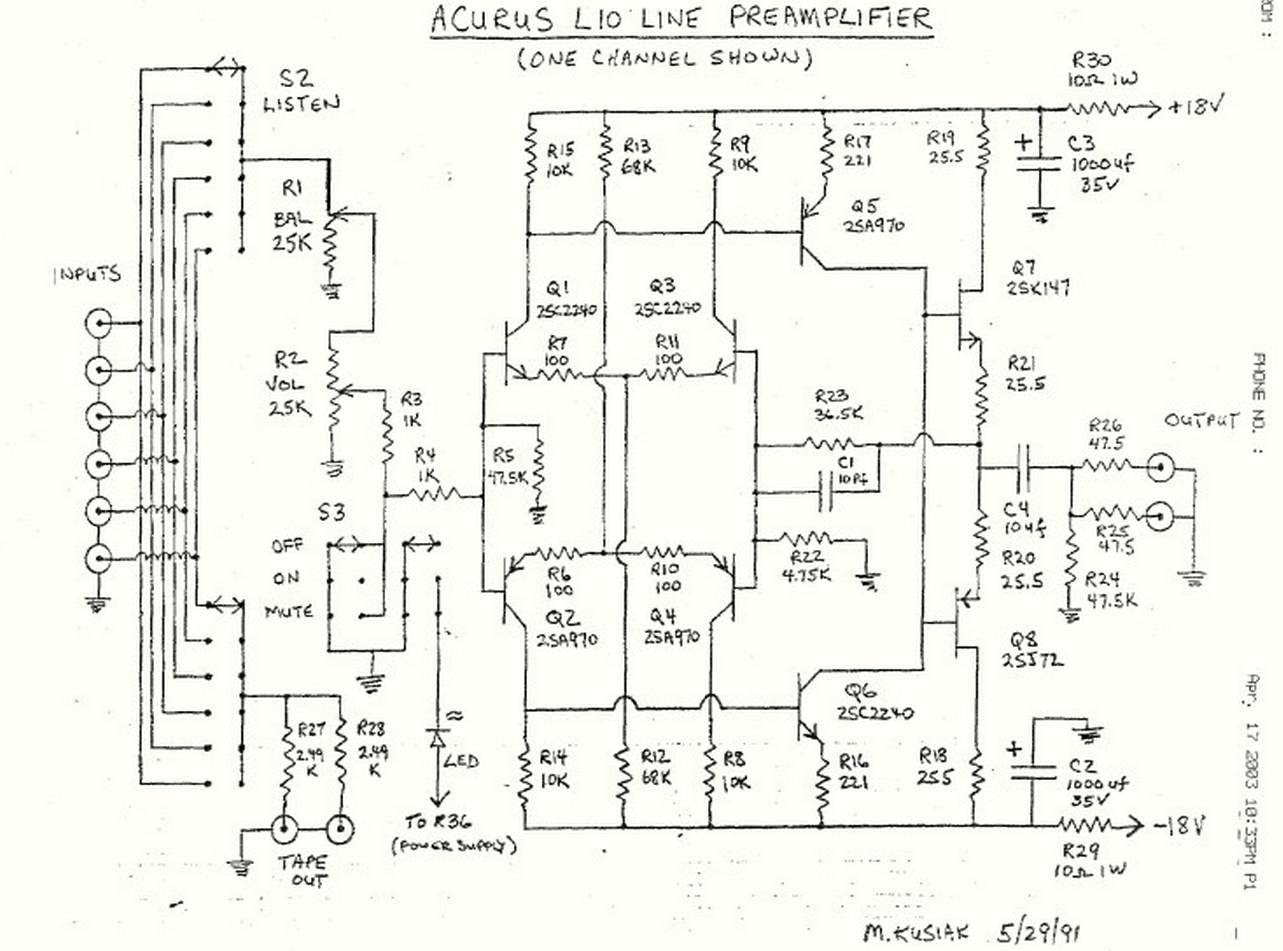 ACURUS L10 LINE PREAMPLIFIER
(ONE CHANNEL SHOWN)
S2
LISTEN
R1
BAL
25K
INPUTS
R2
VOL
25K
R3
1K
R4
1K
S3
OFF
ON
MUTE
R5
47.5K
R15
10K
R13
68K
R9
10K
R17
221
R19
25.5
R30
10Ω 1W
+18V
+
C3
1000uf
35V
Q5
2SA970
Q1
2SC2240
Q3
2SC2240
R7
100
R11
100
Q7
2SK147
R21
25.5
R23
36.5K
C1
10Pf
R22
4.75K
C4
10uf
R20
25.5
R26
47.5
OUTPUT
R25
47.5
R24
47.5K
R6
100
R10
100
Q2
2SA970
Q4
2SA970
Q8
2SJ72
Q6
2SC2240
R27
2.49
K
R28
2.49
K
≈
LED
TO R36
(POWER SUPPLY)
TAPE
OUT
R14
10K
R12
68K
R8
10K
R16
221
R18
25.5
+
C2
1000uf
35V
-18V
R29
10Ω 1W
M. KUSIAK 5/29/91
PHONE NO. :
Apr. 17 2003 10:33PM P1